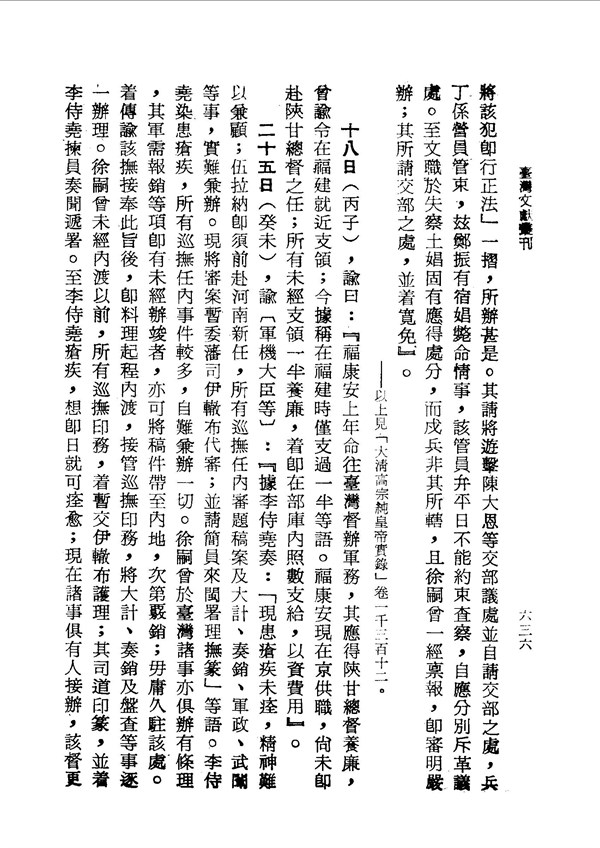 臺灣文獻叢刊
六三六
將該犯卽行正法」一摺,所辦甚是。其請將遊擊陳大恩等交部議處並自請交部之處,兵
丁係營員管束,玆鄭振有宿娼斃命情事,該管員弁平日不能約束査察,自應分別斥革議
處。至文職於失察土娼固有應得處分,而戍兵非其所轄,且徐嗣曾一經稟報,卽審明嚴
辦;其所請交部之處,並着寬免』。
——以上見「大淸高宗純皇帝實錄」卷一千三百十二。
十八日(丙子),諭曰:『福康安上年命往臺灣督辦軍務,其應得陝甘總督養廉,
曾諭令在福建就近支領;今據稱在福建時僅支過一半等語。福康安現在京供職,尙未卽
赴陝甘總督之任;所有未經支領一半養廉,着卽在部庫內照數支給,以資費用』。
二十五日(癸未),諭〔軍機大臣等〕:『據李侍堯奏:「現患瘡疾未痊,精神難
以兼顧;伍拉納卽須前赴河南新任,所有巡撫任內審題稿案及大計、奏銷、軍政、武闈
等事,實難兼辦。現將審案暫委藩司伊轍布代審;並請簡員來閩署理撫篆」等語。李侍
堯染患瘡疾,所有巡撫任內事件較多,自難兼辦一切。徐嗣曾於臺灣諸事亦俱辦有條理
,其軍需報銷等項卽有未經辦竣者,亦可將稿件帶至內地,次第覈銷;毋庸久駐該處。
着傳諭該撫接奉此旨後,卽料理起程內渡,接管巡撫印務,將大計、奏銷及盤査等事逐
一辦理。徐嗣曾未經內渡以前,所有巡撫印務,着暫交伊轍布護理;其司道印篆,並着
李侍堯揀員奏聞遞署。至李侍堯瘡疾,想卽日就可痊愈;現在諸事俱有人接辦,該督更